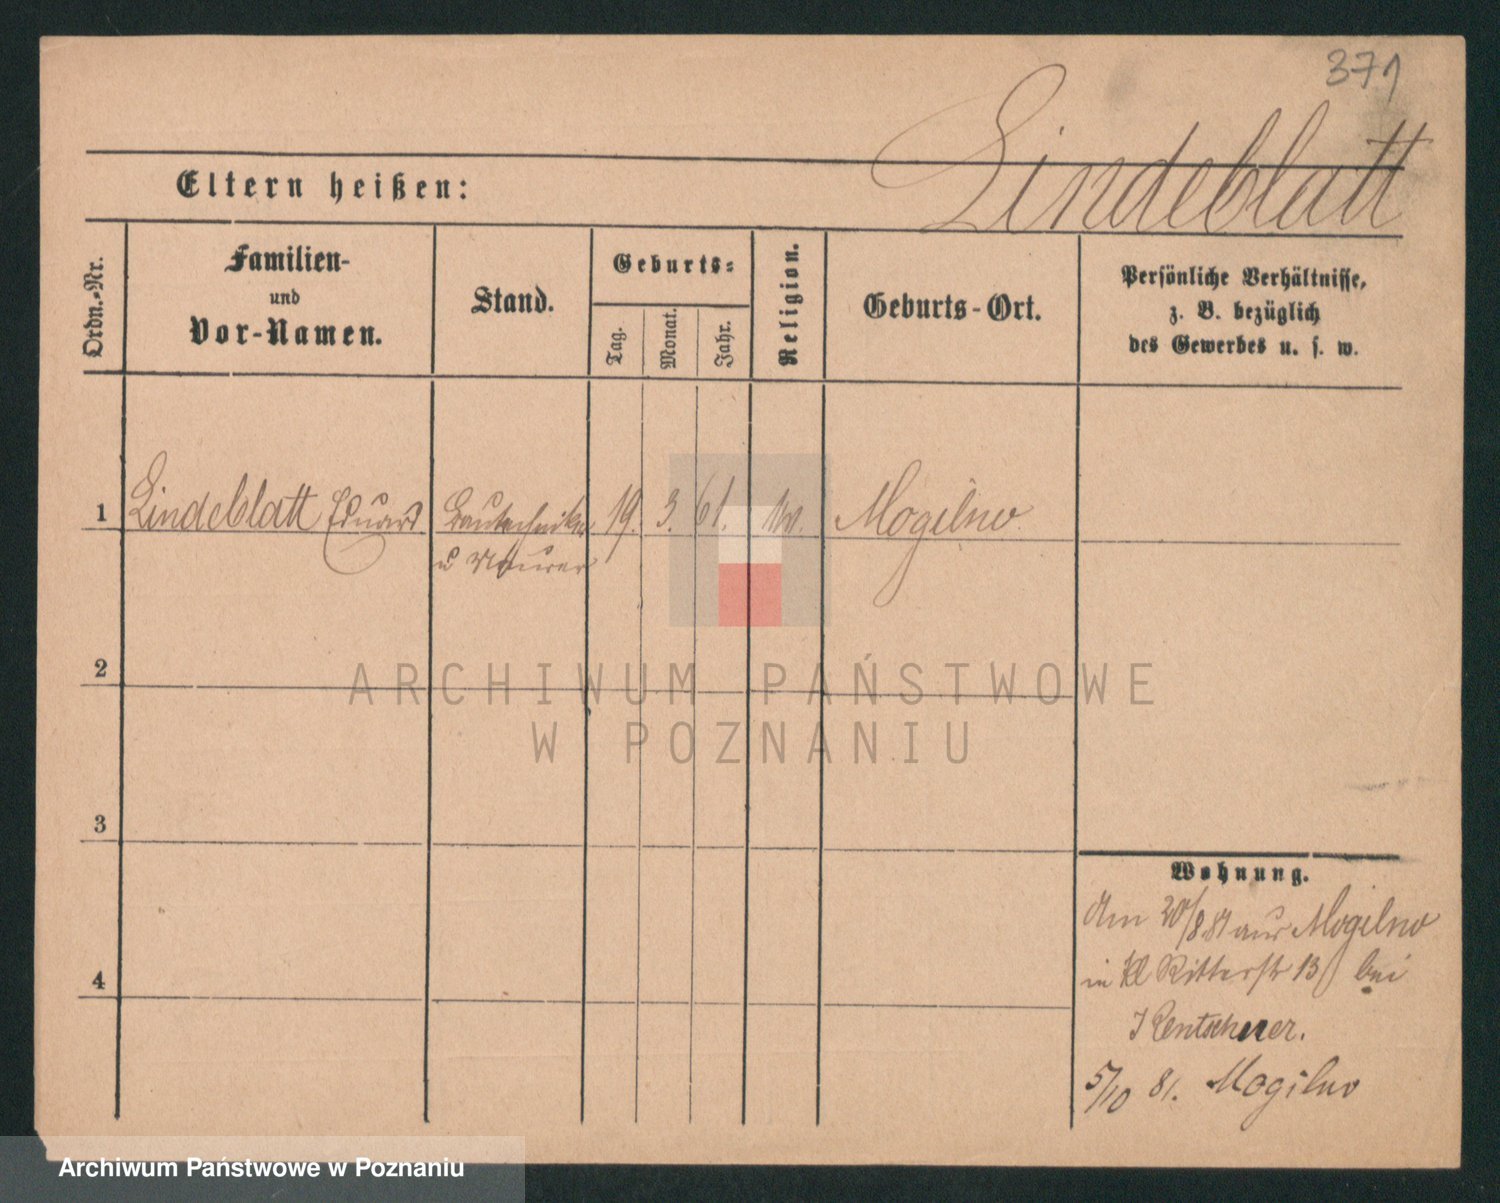 371
Lindeblatt
Eltern heißen:
Ordn.-Nr.
Familien-
und
Vor-Namen.
Stand.
Geburts-
Tag.
Monat.
Jahr.
Religion.
Geburts-Ort.
Persönliche Verhältnisse,
z. B. bezüglich
des Gewerbes u. s. w.
1 Lindeblatt Eduard Bautechniker 19. 3. 61. Mogilno
u Maurer
2
3
4
Wohnung.
Am 20/8.81 aus Mogilno
in Kl Ritterstr 13 bei
5/10 81. Mogilno
ARCHIWUM PAŃSTWOWE
W POZNANIU
Archiwum Państwowe w Poznaniu